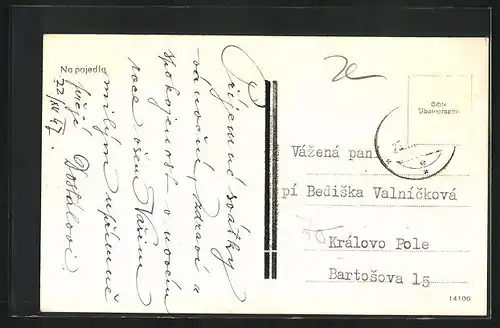 Na pojedla
22/XII 47.
Příjemné svátky
vánoční, zdraví a
spokojenost v novém
roce všem Vašim
milým upřímně
přejí Dostálovi.
Vážená paní
pí Bediška Valníčková
Královo Pole
Bartošova 15
14106